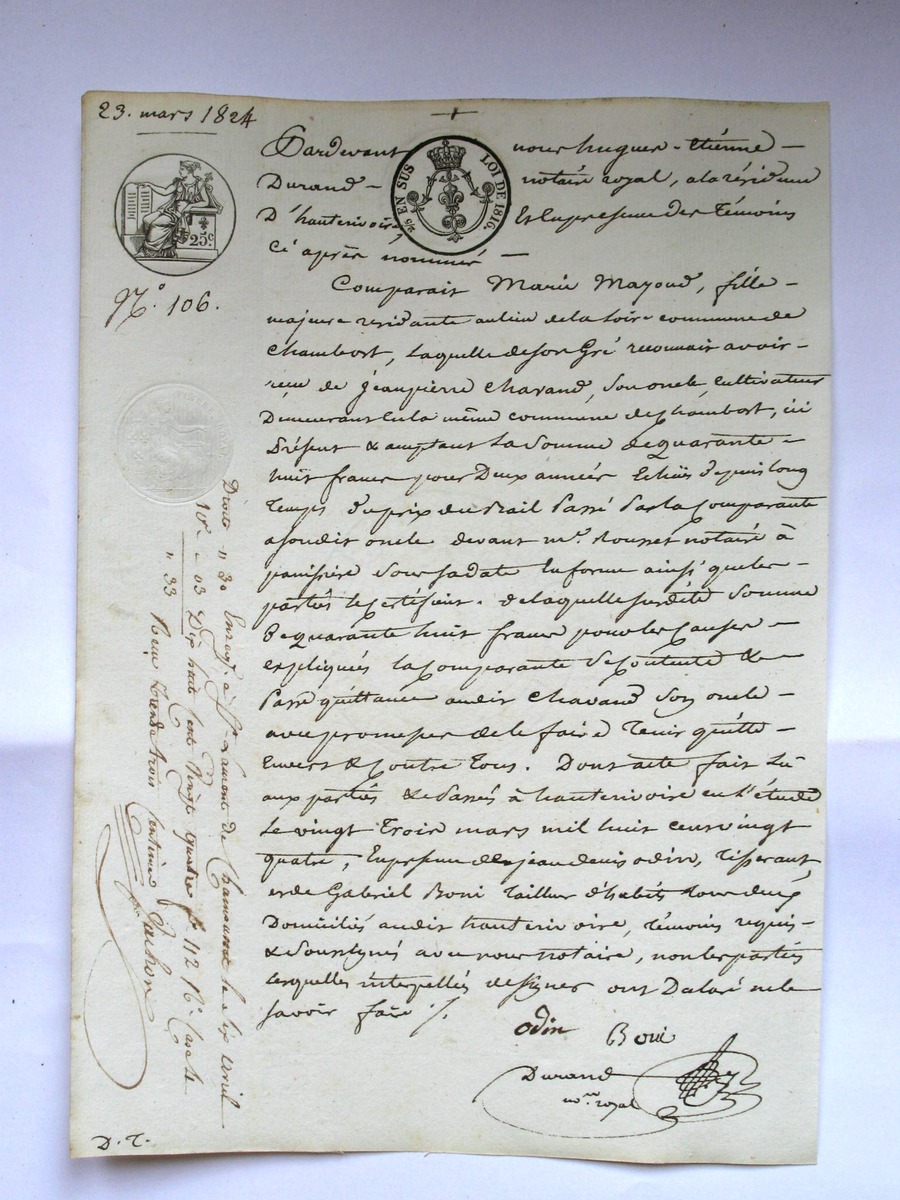 23. mars 1824
25c
25c EN SUS LOI DE 1816.
N.o 106.
Pardevant nous hugues-Etiénne
Durand notaire royal, a la résidence
D'hauterivoire Et En presence des Témoins
Ci après nommés
Comparait Marie Mayoud, fille
majeure residante au lieu de la Loire commune de
Chambost, Laquelle de son Gré reconnait avoir
reçu de jeanpierre Chavand, son oncle Cultivateur
Demeurant En la même commune de Chambost, ici
Présent & acceptant La Somme de quarante
huit francs pour Deux années Echües depuis long
Temps du prix du Bail Passé Par la Comparante
a son dit oncle devant me. rousset notaire à
panissiere sous sa date En forme ainsi que les
partiés le certifient. de laquelle susdité Somme
De quarante huit francs pour les Causes
expliqués la Comparante Se Contente &
Passe quittance audit Chavand son oncle
avec promesse de le faire Tenir quitte
Envers & Contre Tous. Dont acte fait Lu
aux partiés & Passé à hauterivoire en l'étude
Le vingt Trois mars mil huit cent vingt
quatre, En presence de jean denis odin, Tisserant
et de Gabriel Boni Tailleur d'habits Tous deux
Domiciliés audit hauterivoire, Témoins requis
& Soussignés avec nous notaire, non les partiés
Lesquelles interpellés de signer ont Déclaré ne le
Savoir faire ./.
odin Boni
Durand
nore royal
Droits " 30 Enregt. à St. Laurent de Chamousset le six avril
10e " 03 Dix huit Cent Vingt quatre fo 112 Ro Case 4
" 33 Reçu Trente trois Centimes
D. T.